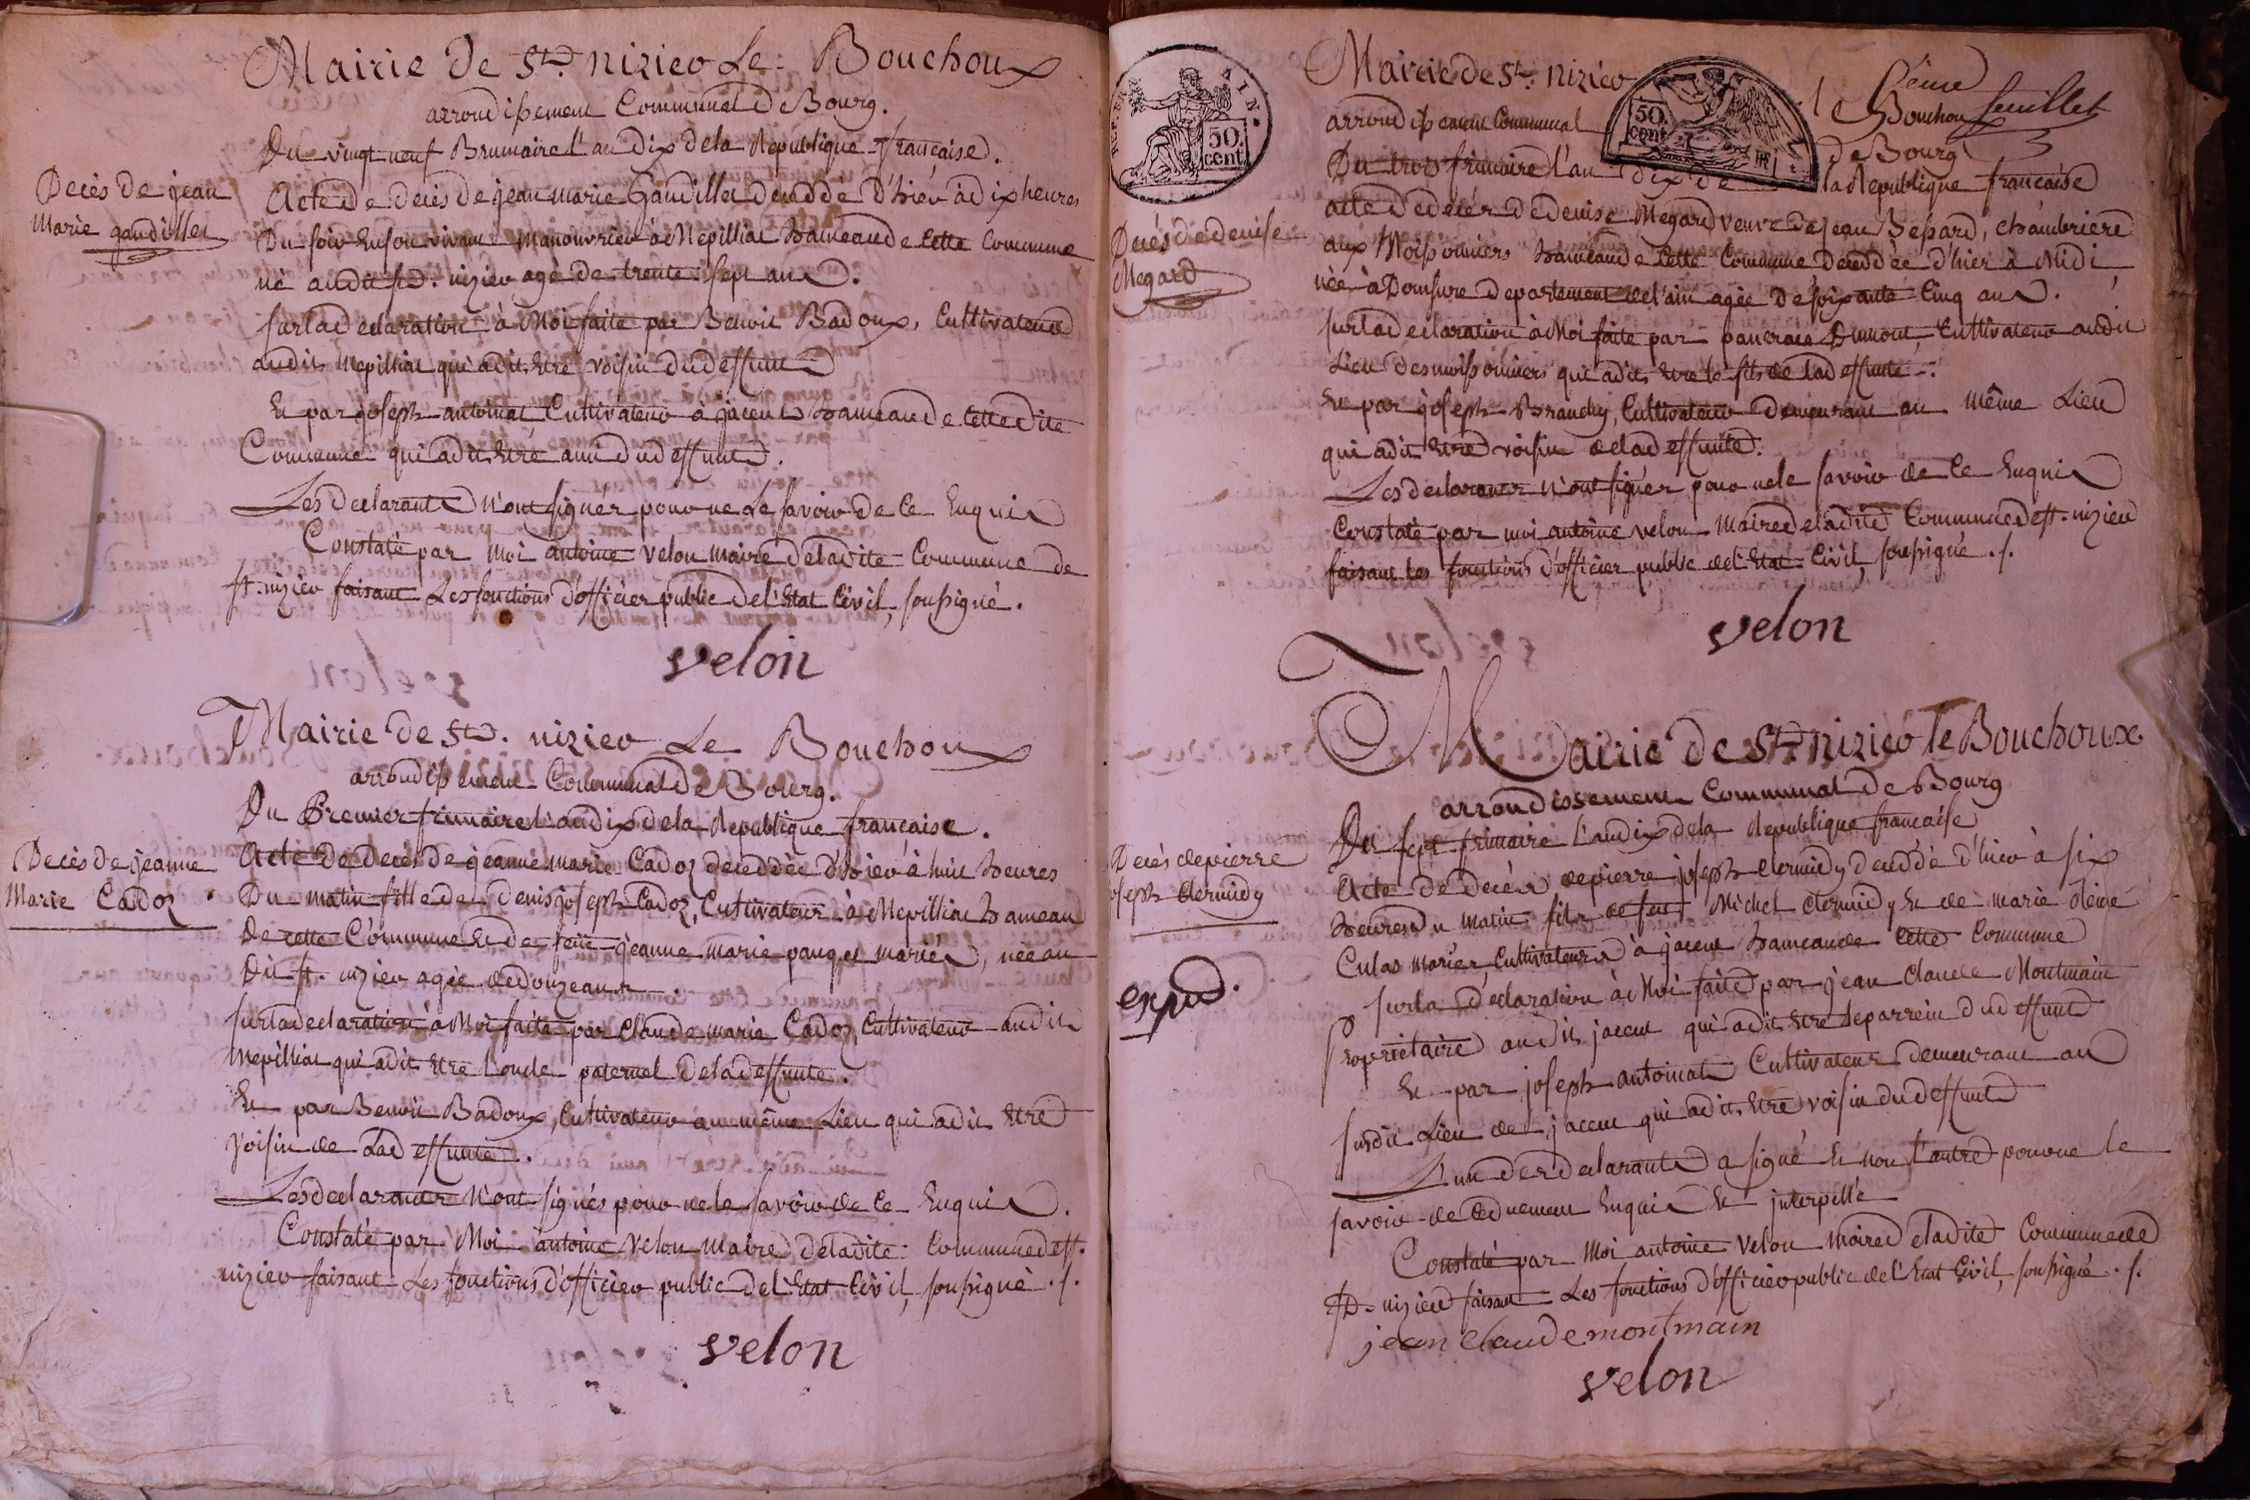 Mairie de St. nizier Le Bouchoux
arrondissement Communal De Bourg.
Du vingt neuf Brumaire l'an Dix de la Republique française.
Decès de jean
Marie gaudillet
Acte de decès de jean marie Gaudillet deceddé d'hier à dix heures
Du soir en son vivant manouvrier à Mepilliat hameau de cette Commune
né audit st. nizier agé de trente sept ans.
sur la declaration à Moi faite par Benoit Badoux, Cultivateur
audit Mepilliat qui a dit être voisin du deffunt
Et par joseph antoinat Cultivateur a jacent hameau de cette dite
Commune qui a dit être ami du deffunt.
Les declarants N'ont signés pour ne Le savoir de ce Enquis
Constaté par moi antoine velon maire de ladite Commune de
st. nizier faisant Les fonctions d'officier public de l'Etat Civil, soussigné.
velon
Mairie de St. nizier Le Bouchoux
arrondissement Communal De Bourg.
Du Premier frimaire l'an dix de la Republique française.
Decès de jeanne
Marie Cadoz
Acte de Decès de jeanne marie Cadoz deceddée d'hier à huit heures
Du matin fille de Denis joseph Cadoz, Cultivateur à Mepilliat hameau
De cette Commune Et de feue jeanne marie pauget mariés, née au
Dit st. nizier agée de douze ans.
sur la declaration à Moi faite par Claude marie Cadoz Cultivateur audit
Mepilliat qui a dit être L'oncle paternel de la deffunte.
Et par Benoit Badoux, Cultivateur au même Lieu qui a dit être
voisin de La deffunte.
Les declarants N'ont signés pour ne le savoir de ce Enquis.
Constaté par Moi antoine Velon maire de ladite Commune de st.
nizier faisant Les fonctions d'officier public de l'Etat Civil, soussigné.
velon
AIN.
50.
cent.
50.
cent.
feuillet
Mairie de St. nizier le Bouchoux
arrondissement Communal de Bourg
Du trois frimaire l'an dix de la Republique française
Decés de denise
Megard
acte de decés de denise Megard veuve de jean Bessard, chambriere
aux Moissonniers hameau de cette Commune deceddée d'hier à Midi
née à Domsure departement de l'ain agée de soixante Cinq ans.
sur la declaration à Moi faite par pancrace Dumont Cultivateur audit
Lieu des moissonniers qui a dit être le fils de la deffunte.
Et par joseph Brandy, Cultivateur demeurant au même Lieu
qui a dit être voisin de la deffunte.
Les declarants N'ont signés pour ne le savoir de ce Enquis
Constaté par moi antoine velon maire de ladite Commune de st. nizier
faisant les fonctions d'officier public de l'Etat Civil, soussigné.
velon
Mairie de St. nizier le Bouchoux
arrondissement Communal de Bourg
Du sept frimaire l'an dix de la Republique française
Decés de pierre
joseph Clermidy
expd.
Acte de decés de pierre joseph Clermidy deceddé d'hier à six
heures du matin fils de feu Michel Clermidy Et de marie
Culas mariés Cultivateurs à jacent hameau de cette Commune
sur la declaration à Moi faite par jean Claude Montmain
Proprietaire audit jacent qui a dit être le parrein du deffunt
Et par joseph antoinat Cultivateur demeurant au
susdit Lieu de jacent qui a dit être voisin du deffunt
L'un des declarants a signé Et non l'autre pour ne le
savoir de ce duement Enquis Et interpellé
Constaté par Moi antoine Velon maire de ladite Commune de
St. nizier faisant Les fonctions d'officier public de l'Etat Civil, soussigné.
jean claude montmain
velon